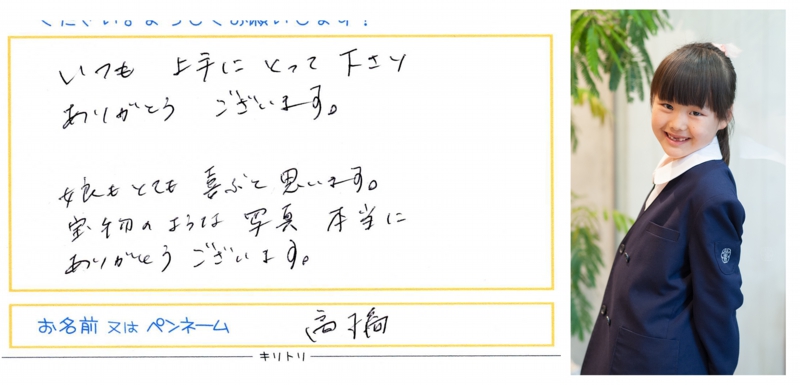 ください。よろしくお願いします！
いつも 上手に とって 下さり
ありがとう ございます。
娘もとても 喜ぶと思います。
宝物のような 写真 本当に
ありがとう ございます。
お名前 又は ペンネーム 高橋
キリトリ